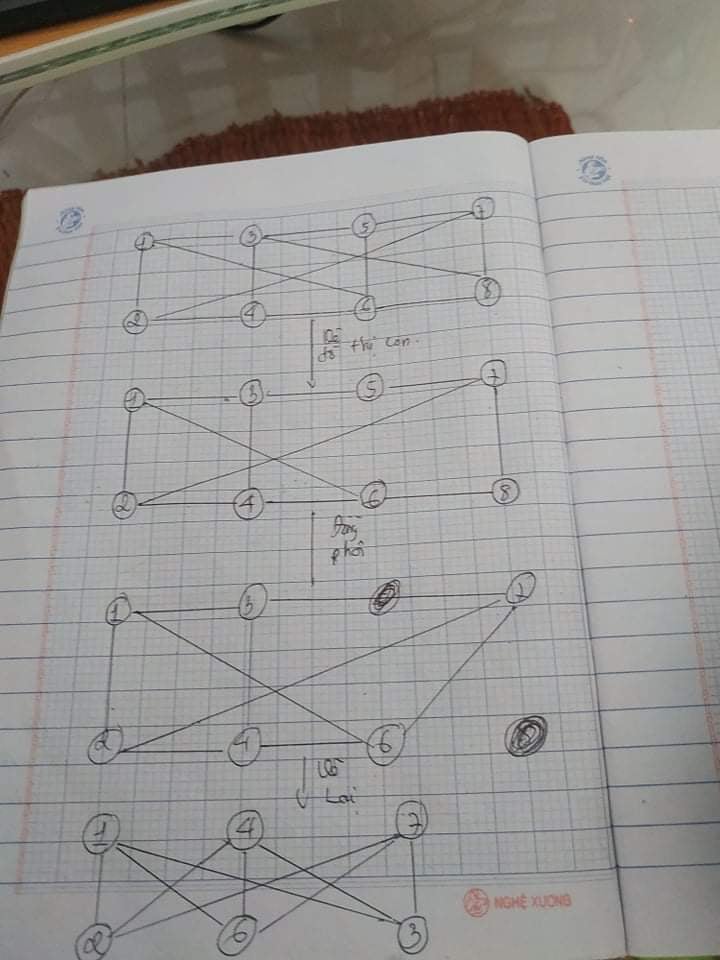 1 3 5 7
2 4 6 8
Vẽ
đồ thị con.
1 3 5 7
2 4 6 8
Đồng
phôi
1 3 7
2 4 6
Vẽ
Lại
1 4 7
2 6 3
NGHỆ XƯƠNG